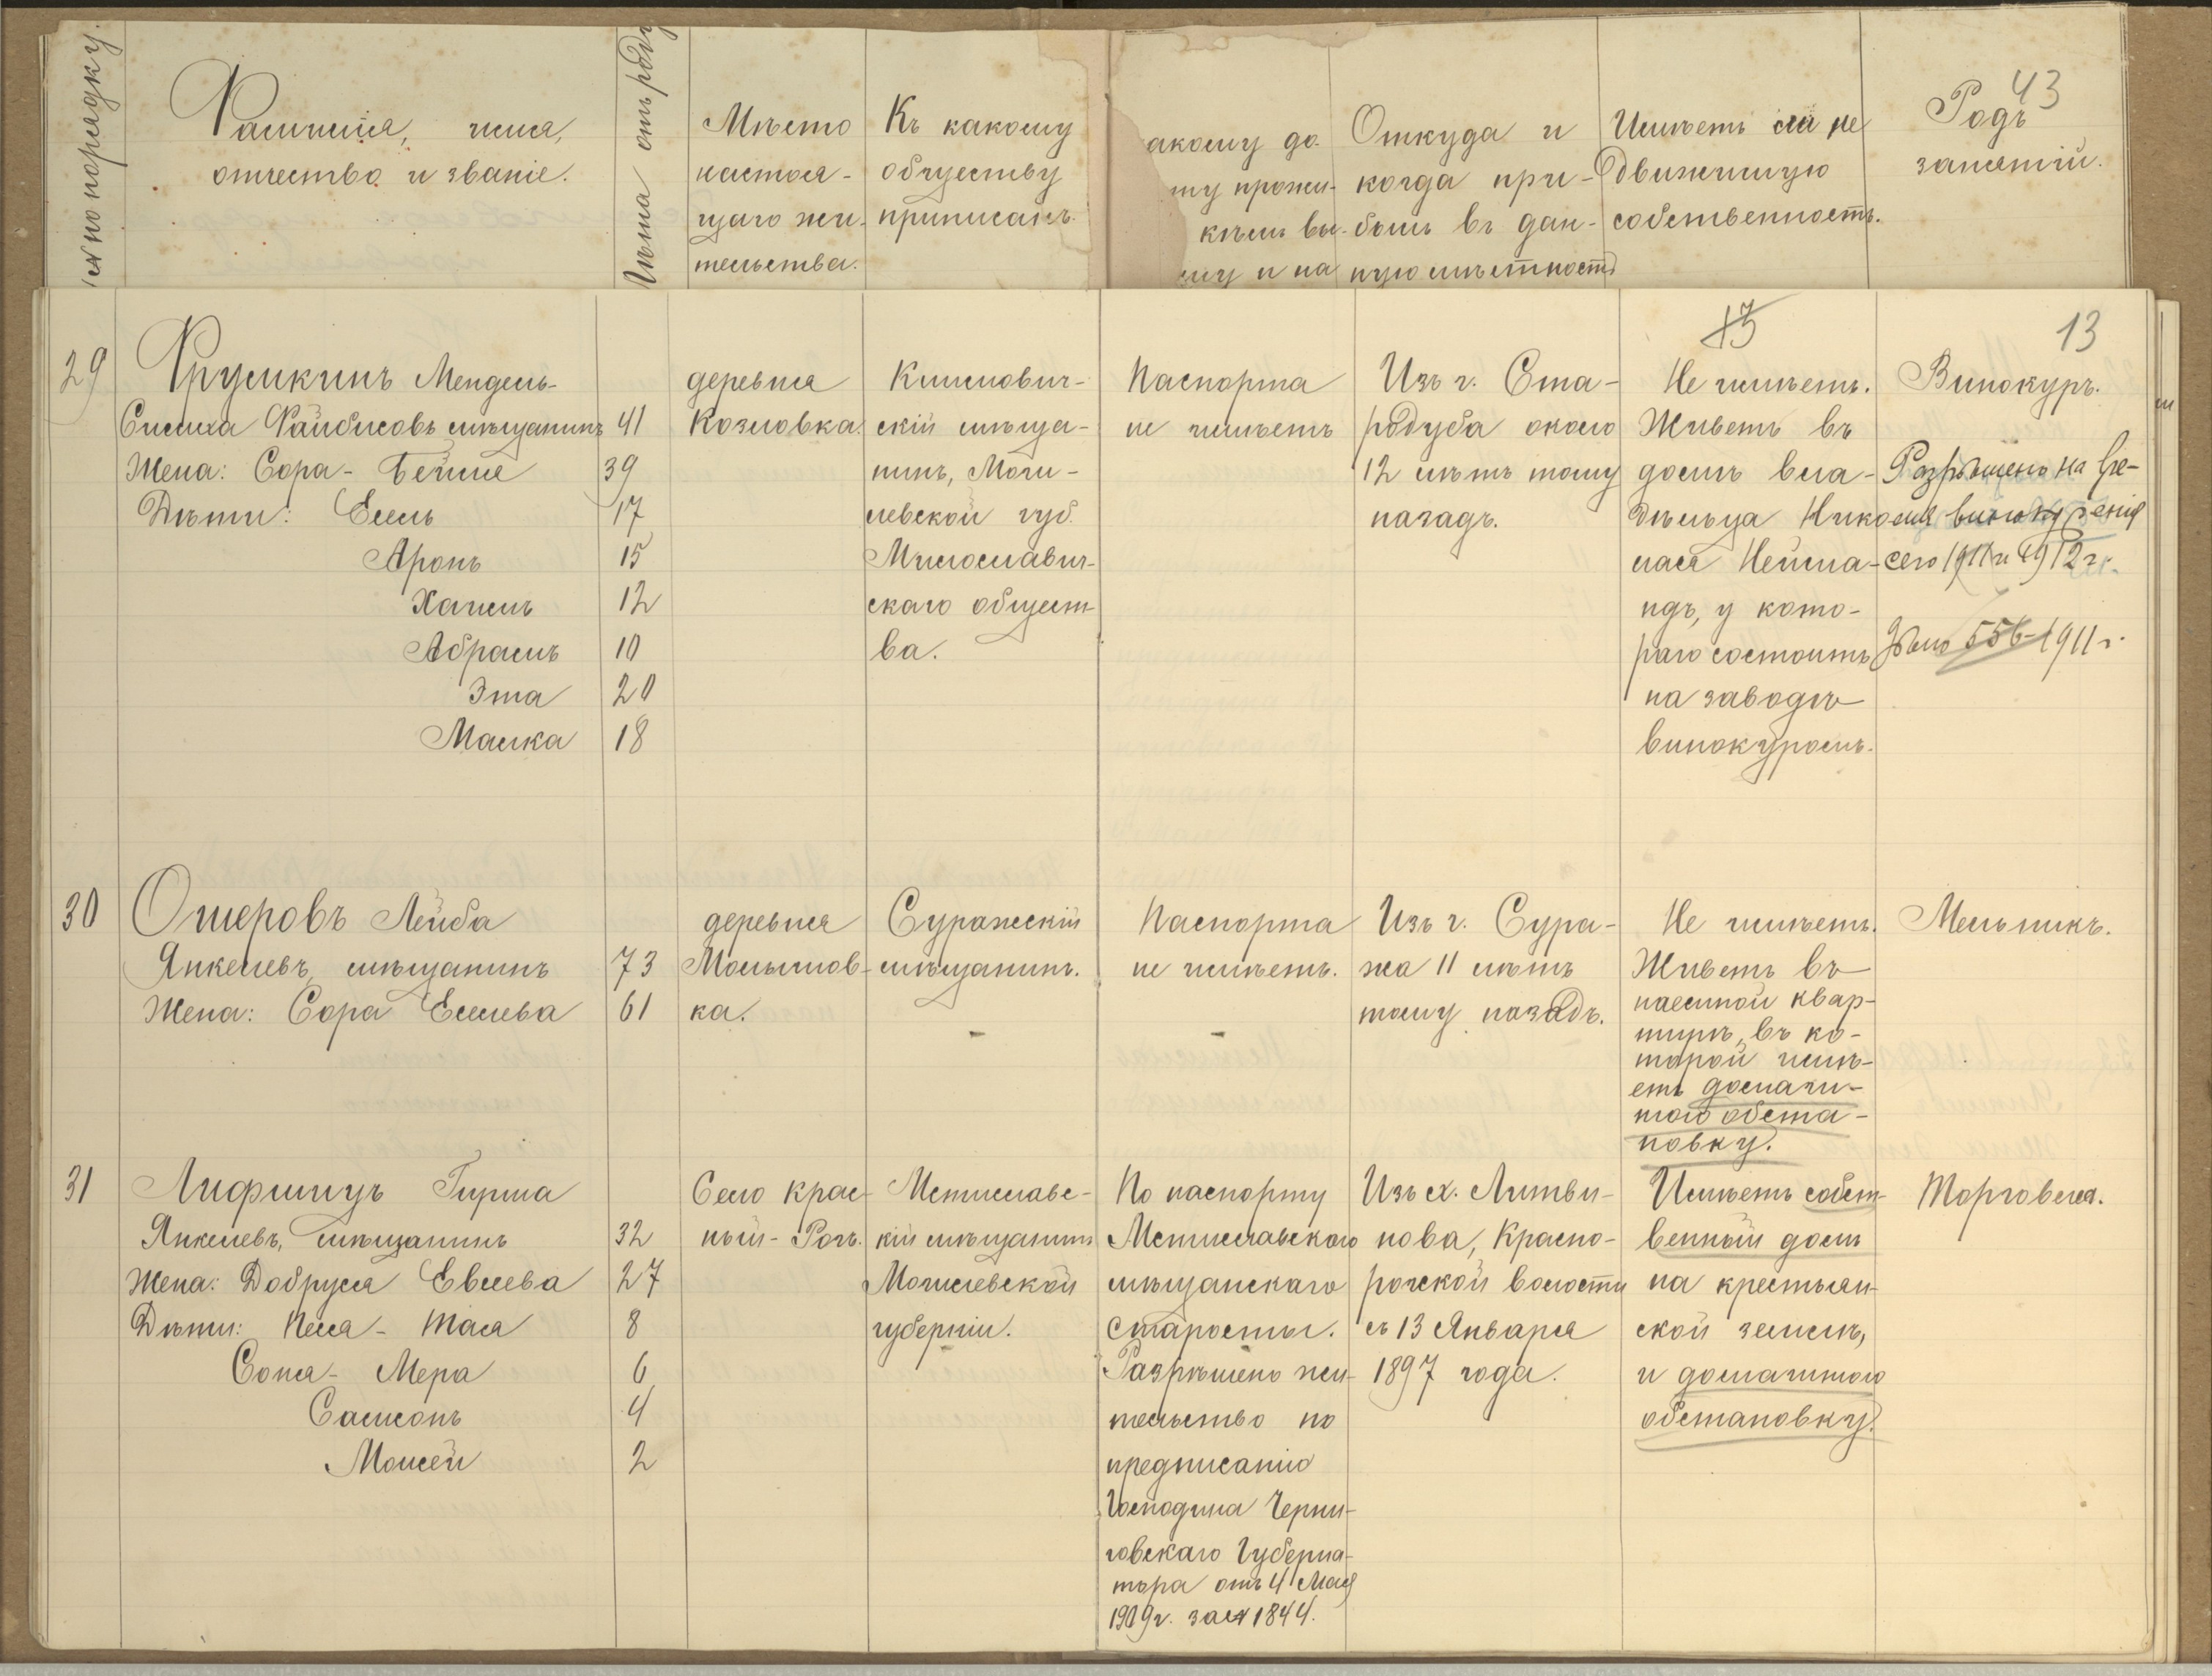 43
№ по порядку.
Фамилія, имя,
отчество и званіе.
Лѣта отъ роду
Мѣсто
настоя-
щаго жи-
тельства.
Къ какому
обществу
приписанъ.
акому до-
ту прожи-
кѣмъ вы-
ему и на
Откуда и
когда при-
былъ въ дан-
ную мѣстность
Имѣетъ ли не
движимую
собственность.
Родъ
занятій.
13
29
Фрумкинъ Мендель-
Симха Файбисовъ мѣщанинъ 41
Жена: Сора-Бейля 39
Дѣти: Есель 17
Аронъ 15
Хаимъ 12
Абрамъ 10
Эта 20
Малка 18
деревня
Козловка.
Климович-
скій мѣща-
нинъ, Моги-
левской губ.
Милославич-
скаго общест-
ва.
Паспорта
не имѣетъ
Изъ г. Ста-
родуба около
12 лѣтъ тому
назадъ.
Не имѣетъ.
Живетъ въ
домѣ вла-
дѣльца Нико-
лая Нейма-
ндъ, у кото-
раго состоитъ
на заводѣ
винокуромъ.
Винокуръ.
Разрѣшено на вре-
мя винокуренія
сего 1911 и 1912 г.
Дѣло 556-1911 г.
30
Ошеровъ Лейба
Янкелевъ, мѣщанинъ 73
Жена: Сора Еселева 61
деревня
Молымов-
ка.
Суражскій
мѣщанинъ.
Паспорта
не имѣетъ.
Изъ г. Сура-
жа 11 лѣтъ
тому назадъ.
Не имѣетъ.
Живетъ въ
наемной квар-
тирѣ, въ ко-
торой имѣ-
етъ домаш-
нюю обста-
новку.
Мельникъ.
31
Лифшицъ Гирша
Янкелевъ, мѣщанинъ 32
Жена: Добруся Евсеева 27
Дѣти: Песя-Тася 8
Соня-Мера 6
Самсонъ 4
Моисей 2
Село Крас-
ный-Рогъ.
Мстиславс-
кій мѣщанинъ
Могилевской
губерніи.
По паспорту
Мстиславскаго
мѣщанскаго
старосты.
Разрѣшено жи-
тельство по
предписанію
Господина Черни-
говскаго Губерна-
тора отъ 4 Мая
1909 г. за № 1844.
Изъ х. Литви-
нова, Красно-
рогской волости
съ 13 Января
1897 года.
Имѣетъ собст-
венный домъ
на крестьян-
ской землѣ,
и домашнюю
обстановку.
Торговля.